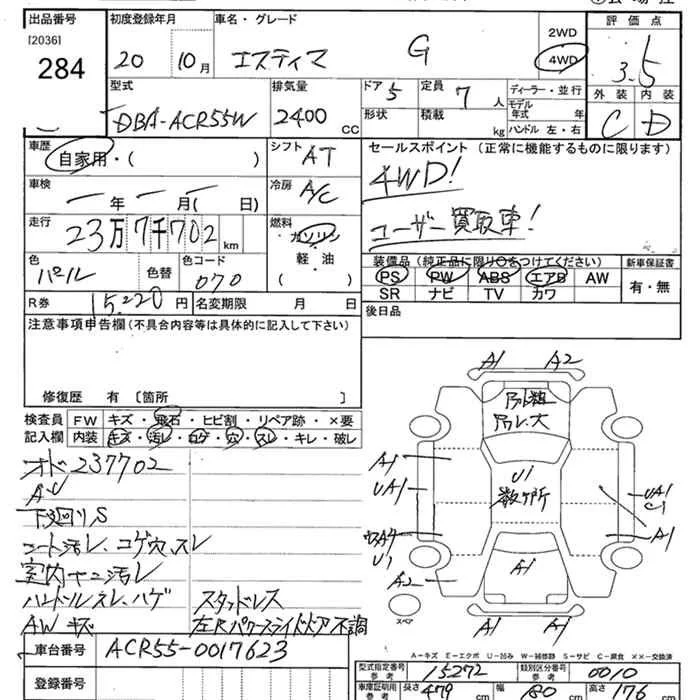 出品番号 初度登録年月 車名・グレード 評価点
[2036] 284 20 10月 エスティマ G 2WD 4WD 3.5
型式 排気量 ドア 5 定員 7人 ディーラー・並行 外装 内装
DBA-ACR55W 2400CC 形状 積載 kg モデル年式 年 ハンドル 左・右 C D
車歴 自家用・( ) シフト AT セールスポイント (正常に機能するものに限ります)
車検 年 月( 日) 冷房 A/C 4WD!
走行 23万7千702km 燃料 ガソリン 軽油 ( ) ユーザー買取車!
色 パール 色替 色コード 070
装備品(純正品に限り○をつけてください) 新車保証書
PS PW ABS エアB AW 有・無
SR ナビ TV カワ
R券 15,220円 名変期限 月 日 後日品
注意事項申告欄(不具合内容等は具体的に記入して下さい)
修復歴 有 [箇所 ]
検査員記入欄 FW キズ・飛石・ヒビ割・リペア跡・×要
内装 キズ・汚レ・コゲ・穴・スレ・キレ・破レ
オド237702
下廻りS
シート汚レ、コゲ穴、スレ
ハンドルスレ、ハゲ スタッドレス
AWキズ 左Rパワースライドドア不調
A1 A2
大
A1 U1 数ヶ所
UA1 UA1
A1
U1
A2 A1
A1 A1
スペア
A-キズ E-エクボ U-凹み W-補修跡 S-サビ C-腐食 ××-交換済
車台番号 ACR55-0017623
登録番号
型式指定番号 参考 15272 類別区分番号 参考 0010
車庫証明用 参考 長さ 479cm 幅 180cm 高さ 176cm